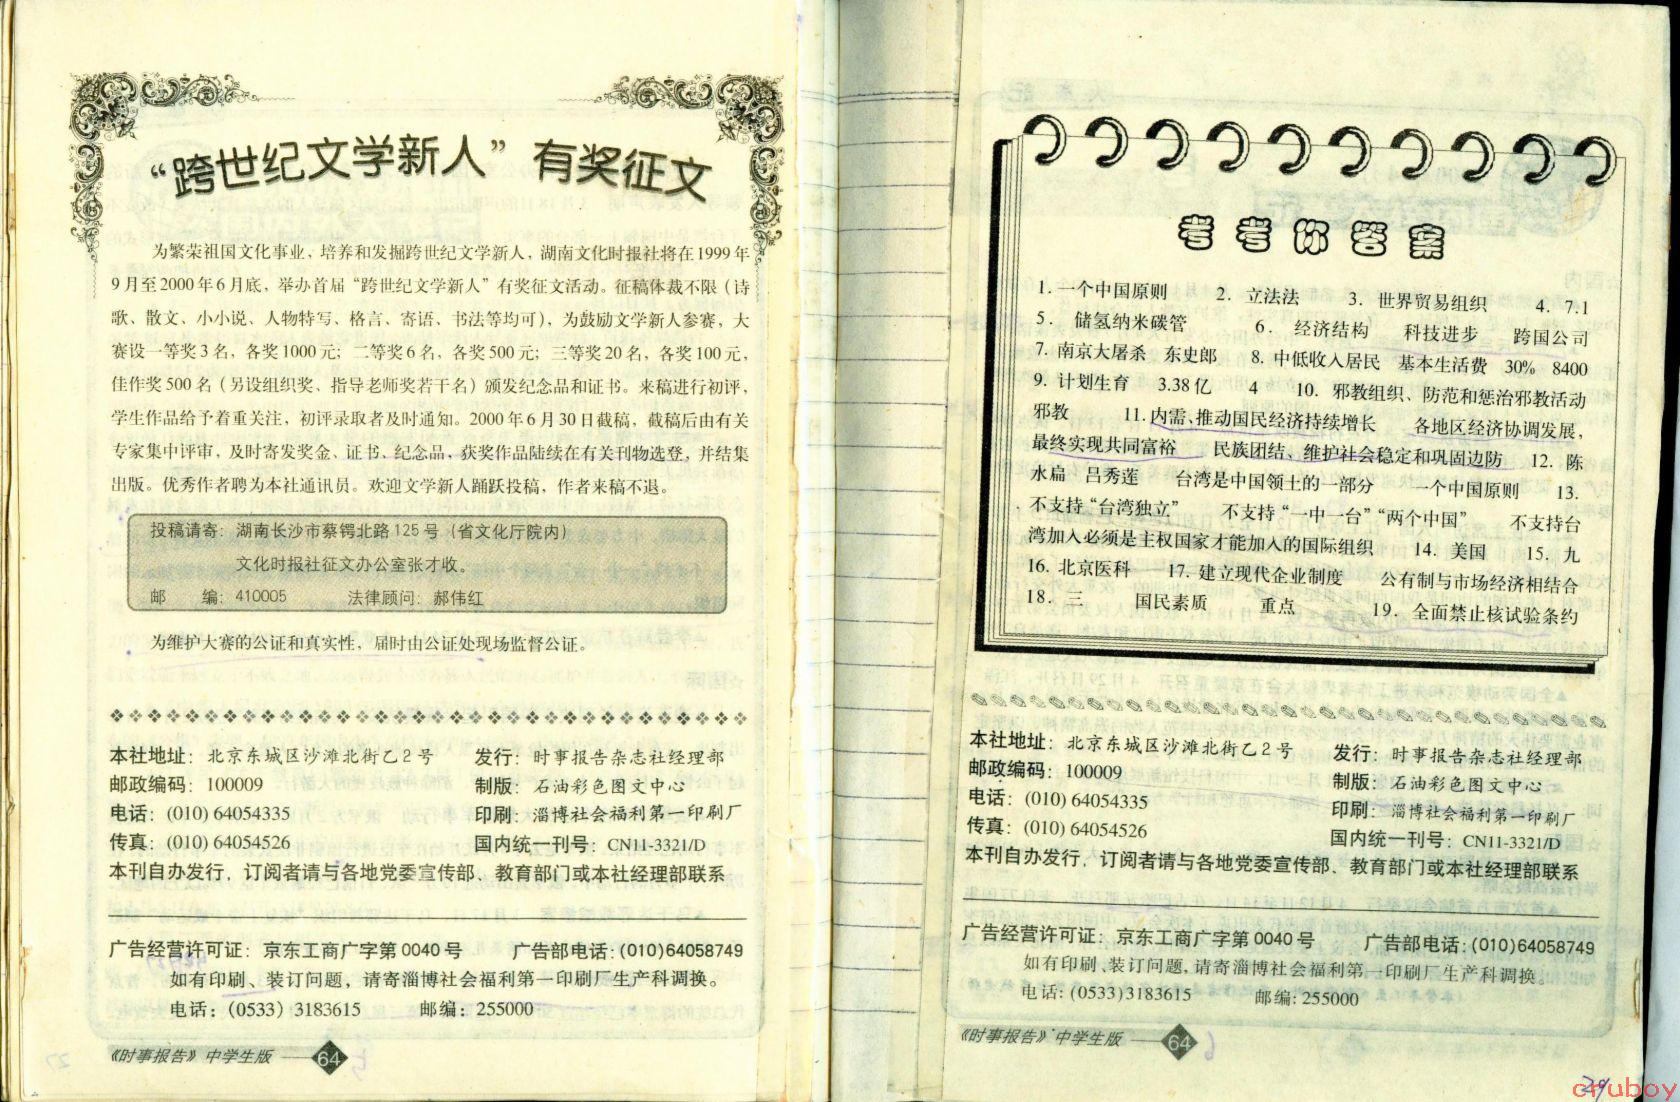 “跨世纪文学新人”有奖征文
为繁荣祖国文化事业，培养和发掘跨世纪文学新人，湖南文化时报社将在1999年
9月至2000年6月底，举办首届“跨世纪文学新人”有奖征文活动。征稿体裁不限（诗
歌、散文、小小说、人物特写、格言、寄语、书法等均可），为鼓励文学新人参赛，大
赛设一等奖3名，各奖1000元；二等奖6名，各奖500元；三等奖20名，各奖100元，
佳作奖500名（另设组织奖、指导老师奖若干名）颁发纪念品和证书。来稿进行初评，
学生作品给予着重关注，初评录取者及时通知。2000年6月30日截稿，截稿后由有关
专家集中评审，及时寄发奖金、证书、纪念品，获奖作品陆续在有关刊物选登，并结集
出版。优秀作者聘为本社通讯员。欢迎文学新人踊跃投稿，作者来稿不退。
投稿请寄：湖南长沙市蔡锷北路125号（省文化厅院内）
文化时报社征文办公室张才收。
邮 编：410005 法律顾问：郝伟红
为维护大赛的公证和真实性，届时由公证处现场监督公证。
本社地址：北京东城区沙滩北街乙2号 发行：时事报告杂志社经理部
邮政编码：100009 制版：石油彩色图文中心
电话：(010) 64054335 印刷：淄博社会福利第一印刷厂
传真：(010) 64054526 国内统一刊号：CN11-3321/D
本刊自办发行，订阅者请与各地党委宣传部、教育部门或本社经理部联系
广告经营许可证：京东工商广字第0040号 广告部电话：(010)64058749
如有印刷、装订问题，请寄淄博社会福利第一印刷厂生产科调换。
电话：(0533) 3183615 邮编：255000
《时事报告》中学生版 64
考考你答案
1. 一个中国原则 2. 立法法 3. 世界贸易组织 4. 7.1
5. 储氢纳米碳管 6. 经济结构 科技进步 跨国公司
7. 南京大屠杀 东史郎 8. 中低收入居民 基本生活费 30% 8400
9. 计划生育 3.38亿 4 10. 邪教组织、防范和惩治邪教活动
邪教 11. 内需、推动国民经济持续增长 各地区经济协调发展，
最终实现共同富裕 民族团结、维护社会稳定和巩固边防 12. 陈
水扁 吕秀莲 台湾是中国领土的一部分 一个中国原则 13.
不支持“台湾独立” 不支持“一中一台”“两个中国” 不支持台
湾加入必须是主权国家才能加入的国际组织 14. 美国 15. 九
16. 北京医科 17. 建立现代企业制度 公有制与市场经济相结合
18. 三 国民素质 重点 19. 全面禁止核试验条约
本社地址：北京东城区沙滩北街乙2号 发行：时事报告杂志社经理部
邮政编码：100009 制版：石油彩色图文中心
电话：(010) 64054335 印刷：淄博社会福利第一印刷厂
传真：(010) 64054526 国内统一刊号：CN11-3321/D
本刊自办发行，订阅者请与各地党委宣传部、教育部门或本社经理部联系
广告经营许可证：京东工商广字第0040号 广告部电话：(010)64058749
如有印刷、装订问题，请寄淄博社会福利第一印刷厂生产科调换。
电话：(0533)3183615 邮编：255000
《时事报告》中学生版 64
29
cruboy